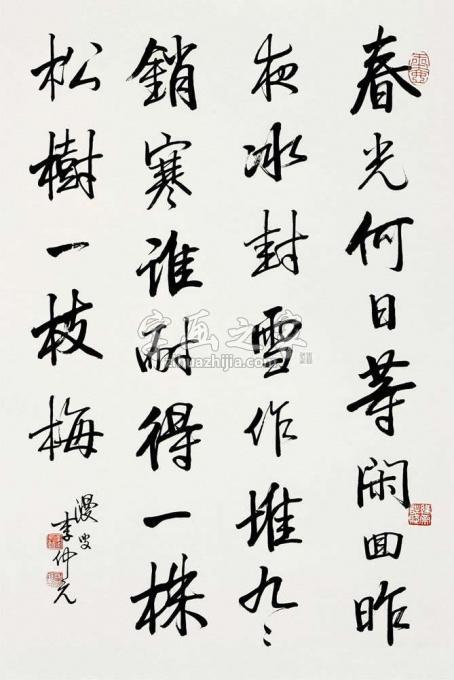 春光何日等闲回昨
夜冰封雪作堆九〻
銷寒谁耐得一株
松樹一枝梅
漫叟
李仲元
字画之家
zihuazhijia.com